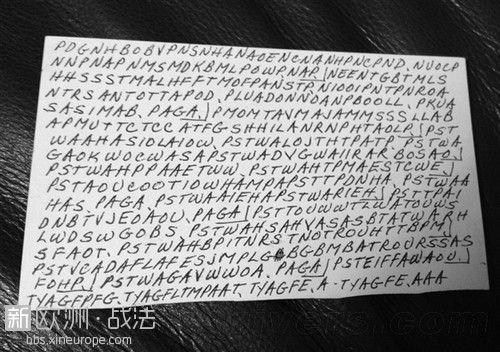 PDGNHBOBVPNSNHANAOENCNANHPNCPND, NUOCP
NNPNAPNMSMDKBMLPOWPNAP/NEENTGBTMLS
HHSSSTMALHFFTMOFPANSTPNIOOIPNTPNROA
NTRSANTOTTAPOD, PLUADONNOANPBOOLL, PKUA
SASIMAB, PAGA./PMOMTAVMAJAMMSSSLLAB
APMUTTCTCCATFGSHHILANRNPHTAOLP/PST
WAAHASIOLAIOW, PSTWALOJTHTPATP. PSTWA
GAOKWOCWASAPSTWADVGWAIIRARBOSAO.
PSTWAHPPAAETWW, PSTWAHTPMAESTCWE./
PSTAOUCOOTIOWHAMPAPSTTPDNHA, PSTWAA
HAS PAGA, PSTWAAIEHAPSTWARIEH/PSTTPAA
DNBTVJEDAOU, PAGA/PSTTOUWWTLWATOUWS
LWDSWGOBS, PSTWAHSAHVASASBTATWARH
SFAOT. PSTWAHBPITNRSTNOTROUHTTBPM/
PSTVCADAFLAFESJMPLGBGBMBATROURSSAS
FOHP/PSTWAGAVWWOA, PAGA/PSTEIFFAWAOU./
TYAGFPFG. TYAGFLTMPAAT, TYAGFE, A-TYAGFE, AAA
新欧洲·战法
bbs.xineurope.com